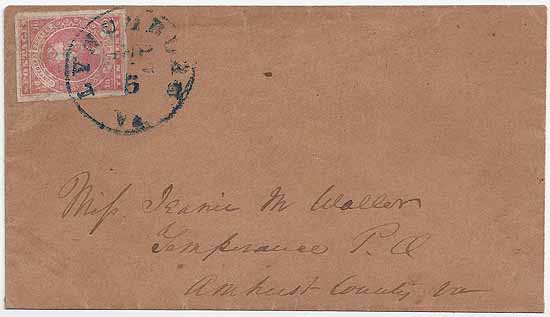 LYNCHBURG
5
VA
Miss Jeanie M Waller
Temperance P.O
Amherst County, Va